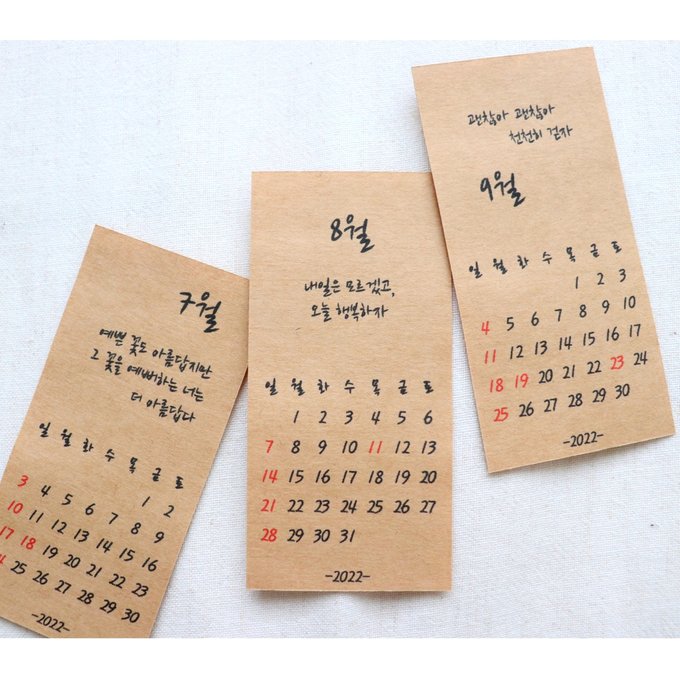 7월
예쁜 꽃도 아름답지만
그 꽃을 예뻐하는 너는
더 아름답다
일 월 화 수 목 금 토
1 2
3 4 5 6 7 8 9
10 11 12 13 14 15 16
17 18 19 20 21 22 23
25 26 27 28 29 30
-2022-
8월
내일은 모르겠고,
오늘 행복하자
일 월 화 수 목 금 토
1 2 3 4 5 6
7 8 9 10 11 12 13
14 15 16 17 18 19 20
21 22 23 24 25 26 27
28 29 30 31
-2022-
괜찮아 괜찮아
천천히 걷자
9월
일 월 화 수 목 금 토
1 2 3
4 5 6 7 8 9 10
11 12 13 14 15 16 17
18 19 20 21 22 23 24
25 26 27 28 29 30
-2022-